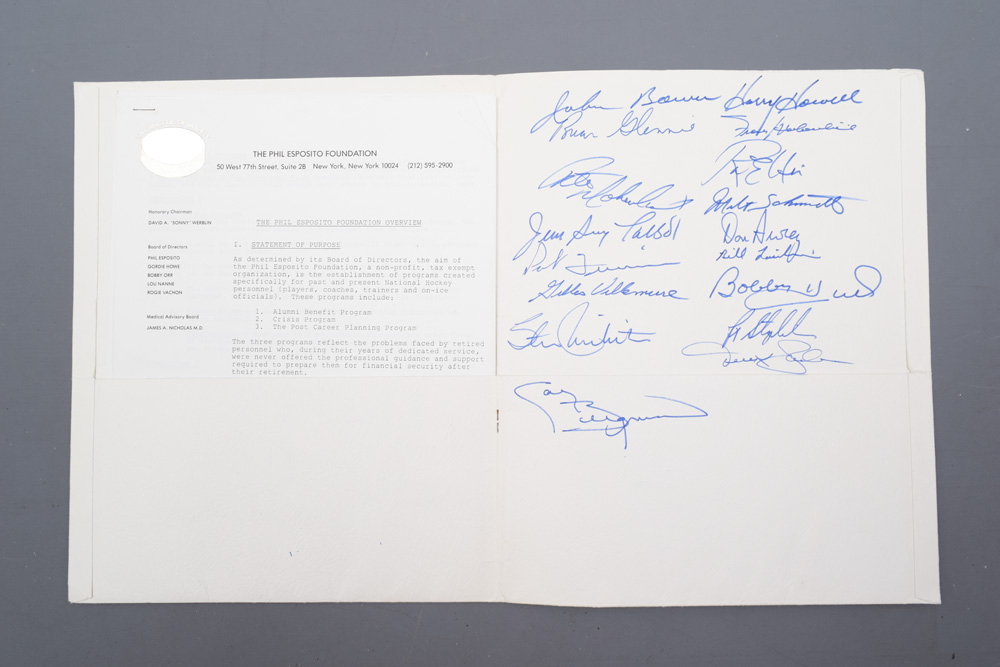 THE PHIL ESPOSITO FOUNDATION
50 West 77th Street, Suite 2B New York, New York 10024 (212) 595-2900
Honorary Chairman
DAVID A. "SONNY" WERBLIN
Board of Directors
PHIL ESPOSITO
GORDIE HOWE
BOBBY ORR
LOU NANNE
ROGIE VACHON
Medical Advisory Board
JAMES A. NICHOLAS M.D.
THE PHIL ESPOSITO FOUNDATION OVERVIEW
1. STATEMENT OF PURPOSE
As determined by its Board of Directors, the aim of
the Phil Esposito Foundation, a non-profit, tax exempt
organization, is the establishment of programs created
specifically for past and present National Hockey
personnel (players, coaches, trainers and on-ice
officials). These programs include:
1. Alumni Benefit Program
2. Crisis Program
3. The Post Career Planning Program
The three programs reflect the problems faced by retired
personnel who, during their years of dedicated service,
were never offered the professional guidance and support
required to prepare them for financial security after
their retirement.
John Bower
Brian Glennie
Pete
Jean Guy Talbot
Gilles Villemure
Harry Howell
Ron Ellis
Milt Schmidt
Don Awrey
Bobby Hull
Gary Bergman